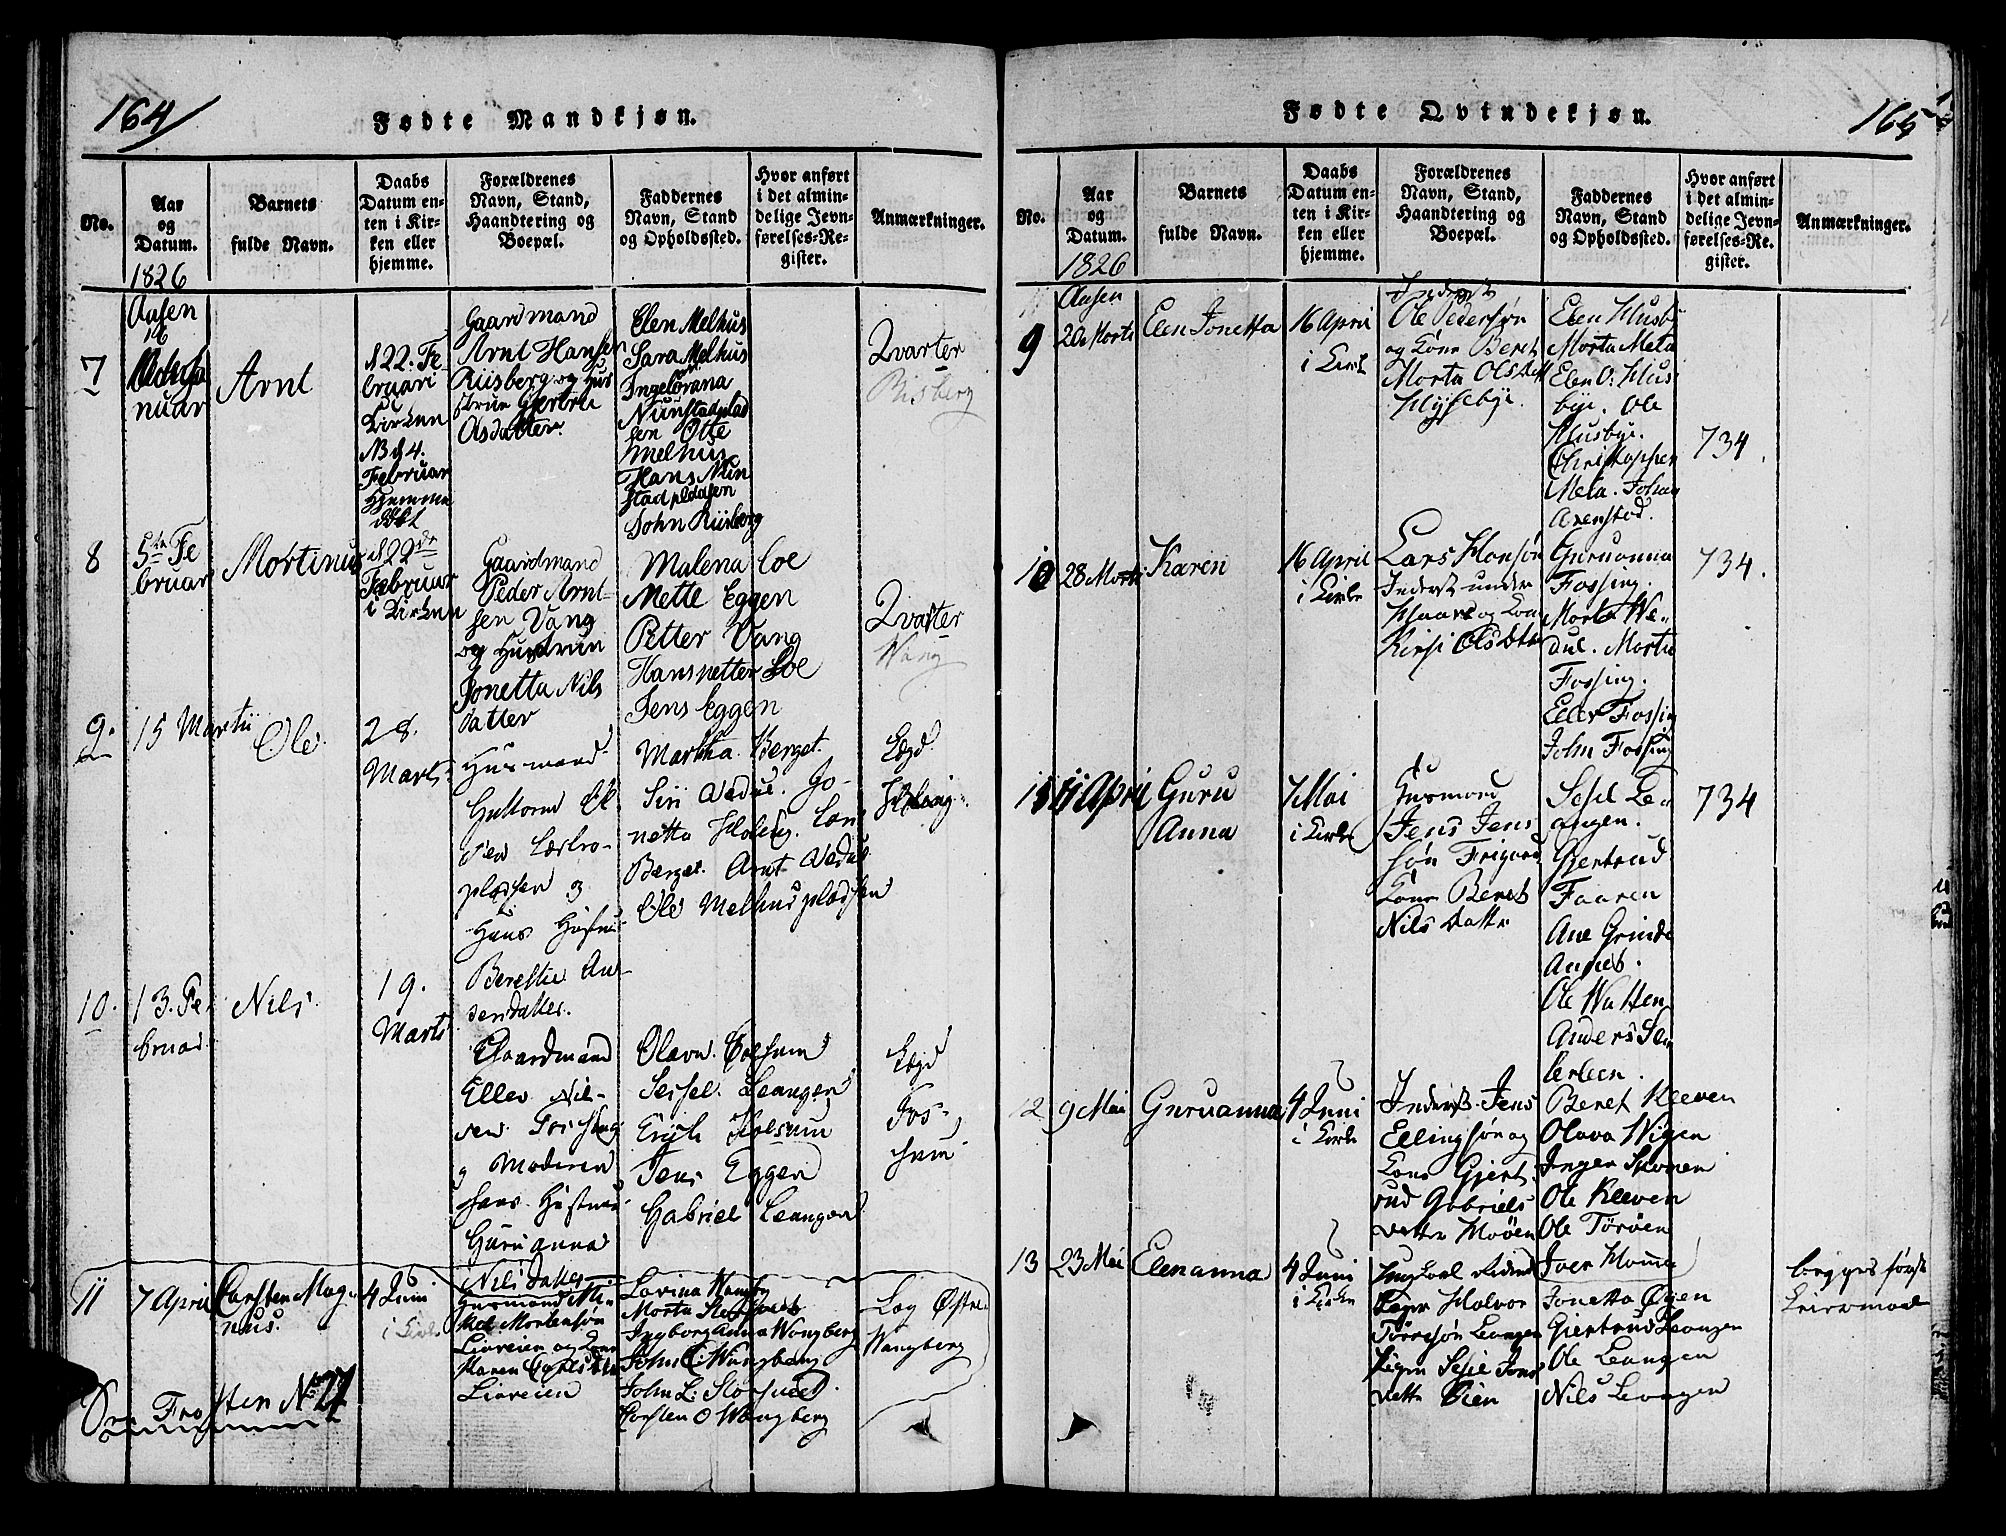 164/
Fødte Mandkjøn.
No.
Aar
og
Datum.
1826
Barnets
fulde Navn.
Daabs
Datum en-
ten i Kir-
ken eller
hjemme.
Forældrenes
Navn, Stand,
Haandtering og
Boepæl.
Faddernes
Navn, Stand
og Opholdssted.
Hvor anført
i det almin-
delige Jevn-
førelses-Re-
gister.
Anmærkninger.
Aasen
7
16
nuar
Arnt
d 22. Fe-
bruari
Kirken
N B d 4.
Februar
Hjemme
døbt
Gaardmand
Arnt Hansen
Riisberg og Hus
strue Gjertru
Olsdatter.
Elen Melhus
Sara Melhus
Ingeborana
Nunstadplad
sen Otte
Melhus
Hans Nun
stadpladsen
John Riisberg
Qvarter
Risberg
8
5te Fe
bruar
Mortinus
d 22de
Februar
i Kirken
Gaardmand
Peder Arnt-
sen Vang
og Hustrue
Jonetta Nils
datter
Malena Loe
Mette Eggen
Petter Vang
Hanspetter Loe
Jens Eggen
Qvarter
Wang
9.
15 Martii
Ole
28.
Marts
Husmand
Guttorm
plassen og
Hans Hustru
Berethe An-
dersdatter.
Martha Berget.
Siri Vedul. Jo-
netta Holing. Lars
Berget. Arnt Vedul
Ole Melhusplassen
Lægd
Holing
10.
13. Fe-
bruar.
Nils
19.
Marts
Gaardmand
Eller Nil-
sen Fossing
og Moderen
hans Hustrue
Guruanna
Nilsdatter
Olava Holsum
Seshel Leangen
Erich Holsum
Jens Eggen
Gabriel Leangen
Lægd
Fos-
11
7 April
Carsten Mag-
nus.
4 Juni
i Kirke
Husmand Mi-
kel Mortensøn
Lioveien og Kone
Maren
Lioveien
Lovina Wangberg
Morta
Ingborg Anna Wangberg
John C: Wangberg
John L:
Carsten O Wangberg
Lag Østre
Wangberg
Frosten No 27
Fødte Qvindekjøn.
165
No.
Aar
og
Datum.
1826
Barnets
fulde Navn.
Daabs
Datum en-
ten i Kir-
ken eller
hjemme.
Forældrenes
Navn, Stand,
Haandtering og
Boepæl.
Faddernes
Navn, Stand
og Opholdssted.
Hvor anført
i det almin-
delige Jevn-
førelses-Re-
gister.
Anmærkninger.
Aasen
9
20 Marti
Elen Jonetta
16 April
i Kirk
Inderst
Ole Pedersøn
og Kone Beret
Morta Olsdatt
Hysebye.
Elen Husby
Morta Mela
Elen O: Hus
bye. Ole
Husbye.
Christopher
Mela. Johan
Arenstad.
734
10
28 Marti
Karen
16 April
i Kirke
Lars Hansøn
Inderst under
og Kone
Kirsti Olsdatte
Guruanna
Fossing.
Morta We-
dul. Morta
Fossing.
Eller Fossing
John Fossing
734.
11
11 April
Guru
Anna
7 Mai
i Kirke
Husmand
Jens Jens
søn Frigaard
Kone Beret
Nils datte
Sesel Le-
angen.
Gjertrud
Faaren
Ane Grinde
Annes.
Ole Watten
Anders
734
12
9 Mai
Guruanna
4 Juni
i Kirke
Inderst Jens
Ellingsøn og
Kone Gjert
rud Gabriels
datte Moøen
Beret Kleven
Olava Wigen
Inger
Ole Kleven
Ole Torøen
13
23 Mai
Elenanna
4 Juni
i Kirke
Halvor
Torresøn Leangen
Pigen Sesel Jons
datte Eien
Joer Momma
Jonetta Øyen
Gjertrud Leangen
Ole Leangen
Nils Leangen
begges første
Leiermaal